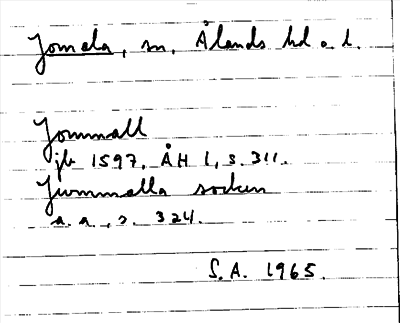 Jomala, sn, Ålands hd o. l.
Jommall
jb 1597, ÅH 1, s. 311.
Jwmmalla socken
a.a., s. 324.
S.A. 1965.